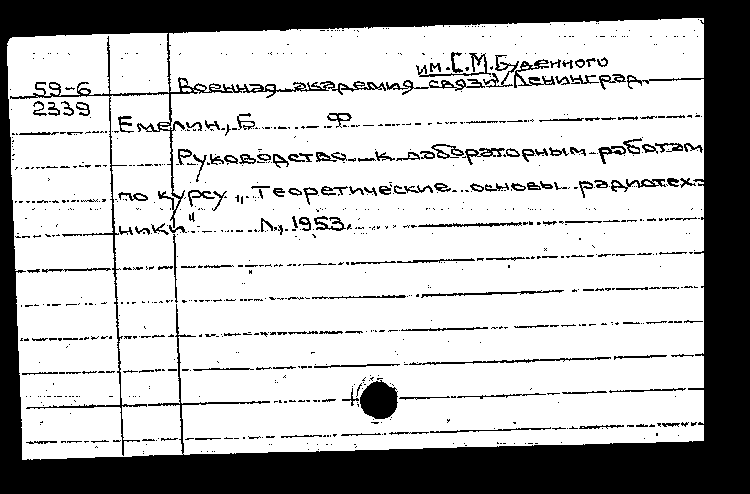 им. С.М. Буденного
59-6 Военная академия связи/Ленинград.
2339
Емелин, Б Ф
Руководство к лабораторным работам
по курсу „Теоретические основы радиотех-
ники" Л., 1953.